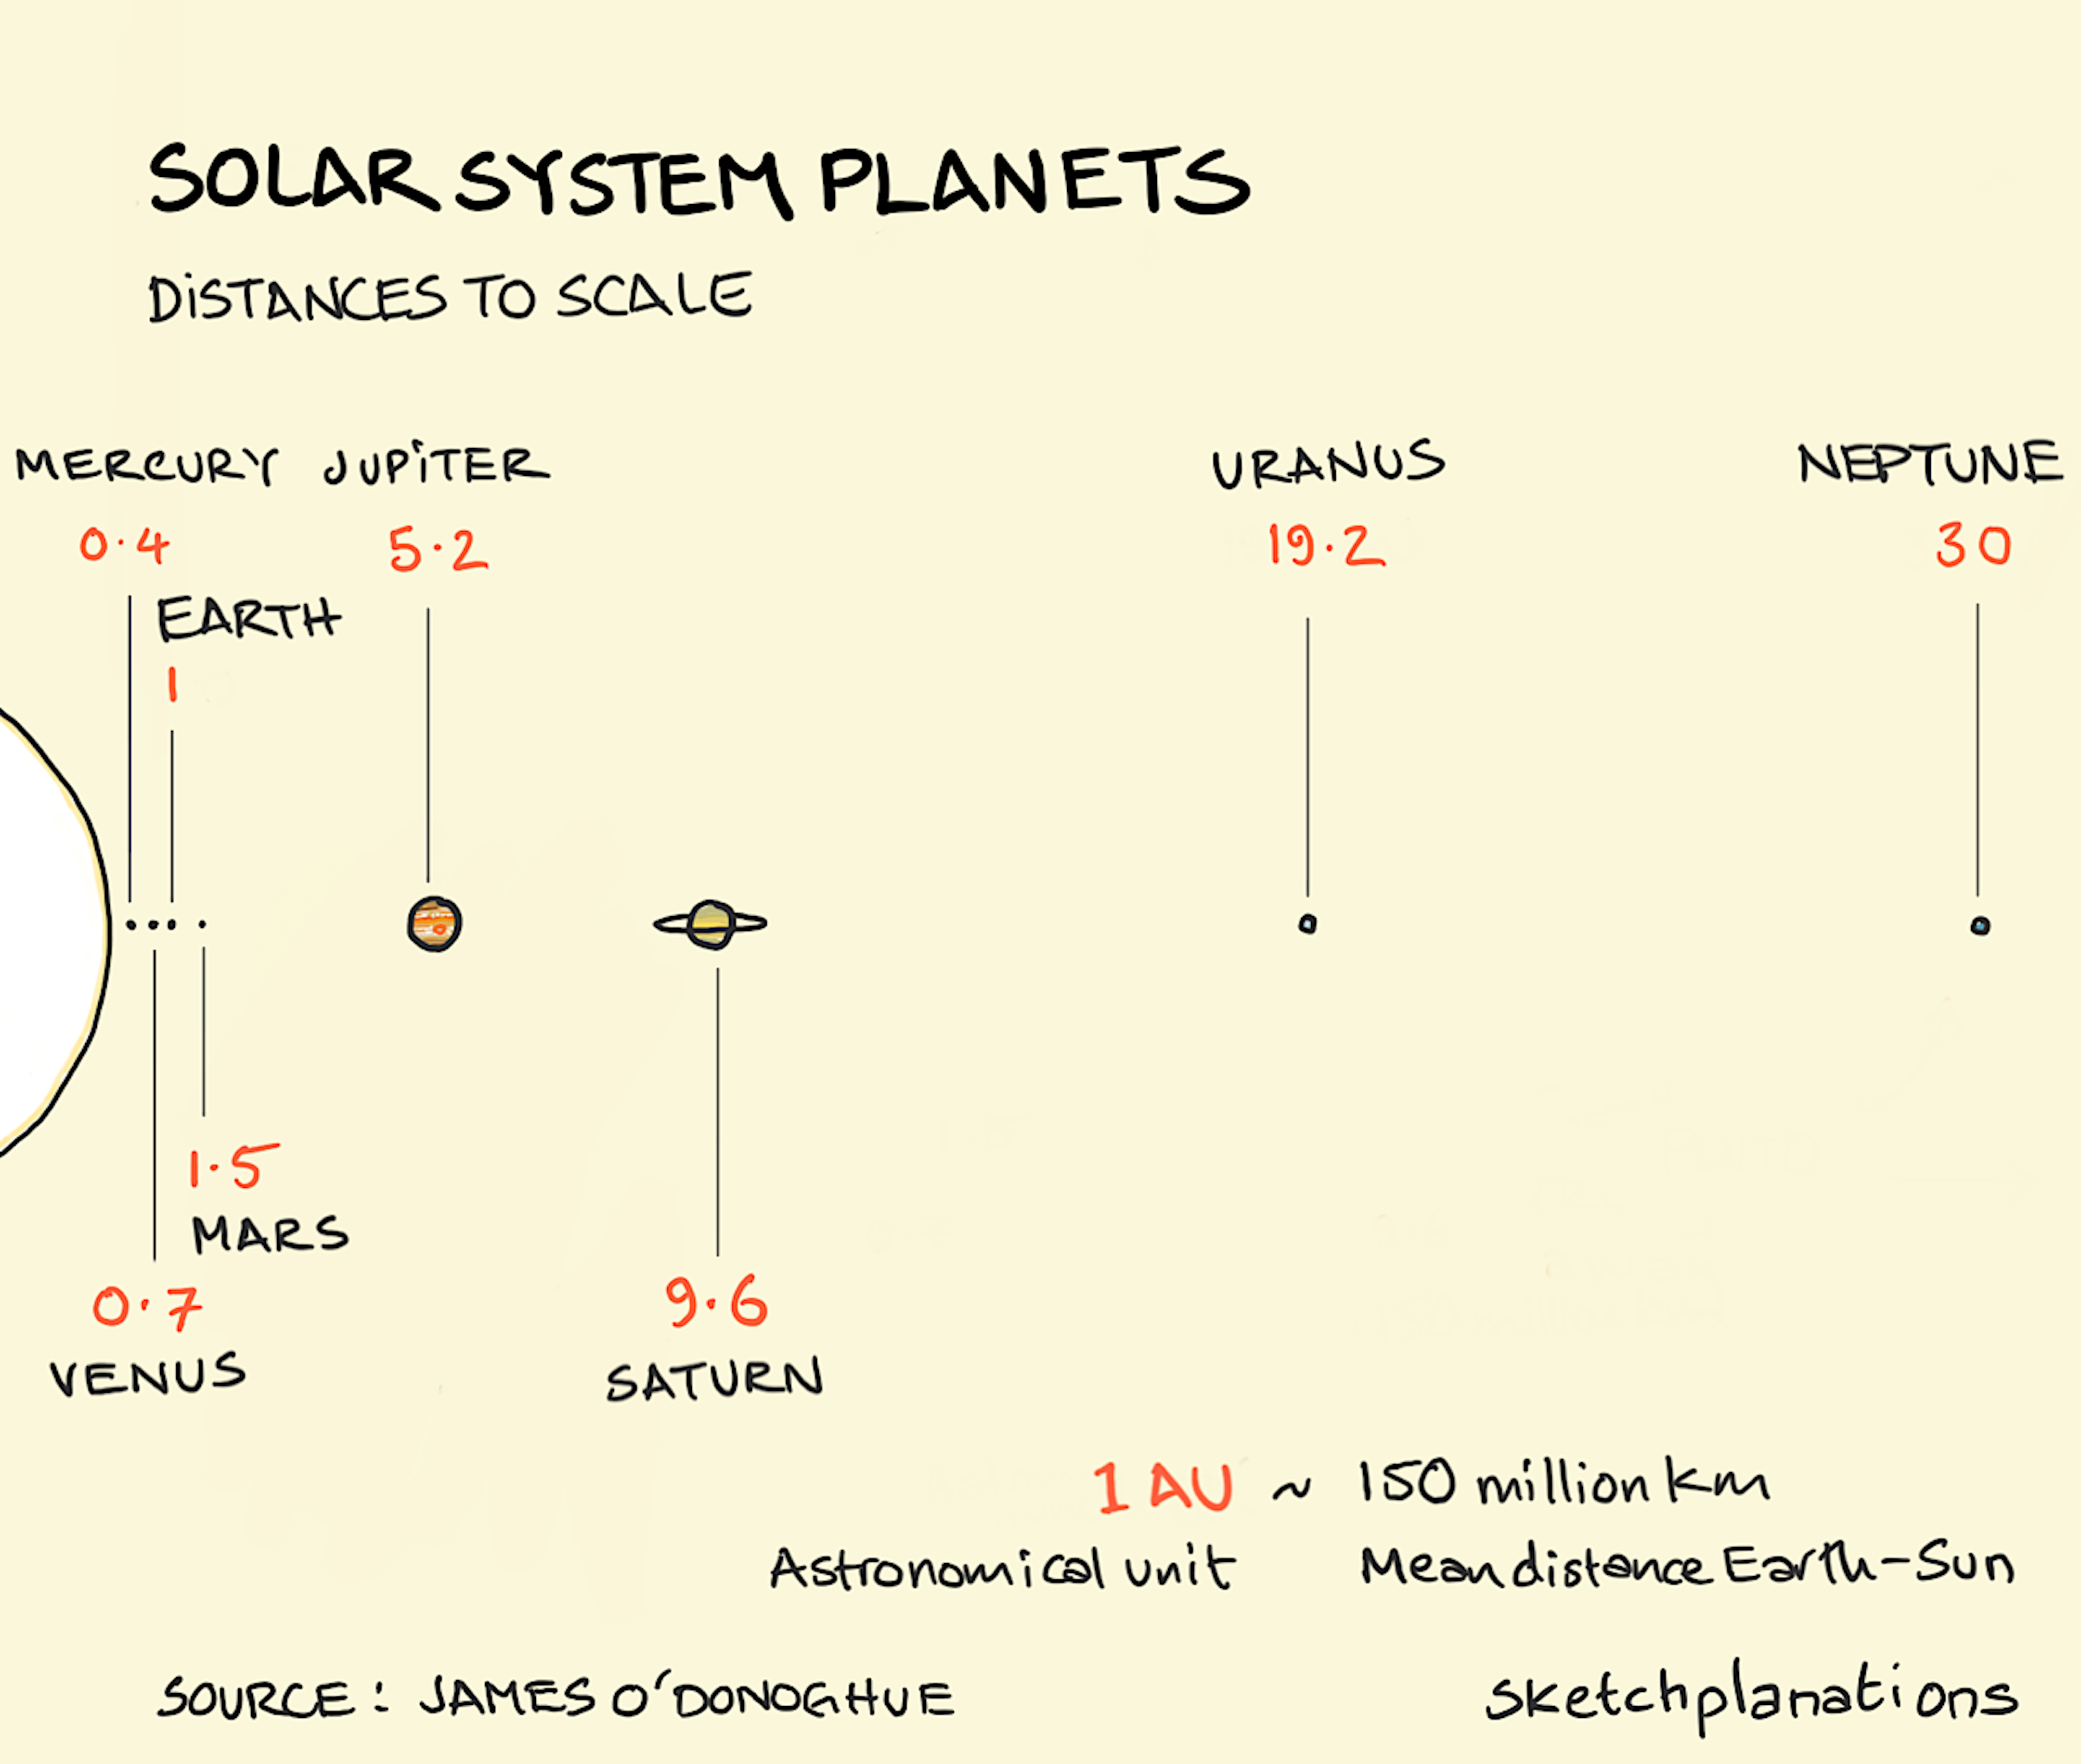 SOLAR SYSTEM PLANETS
DISTANCES TO SCALE
MERCURY JUPITER URANUS NEPTUNE
0.4 5.2 19.2 30
EARTH
1
1.5
MARS
0.7 9.6
VENUS SATURN
1 AU ~ 150 million km
Astronomical unit Mean distance Earth-Sun
SOURCE: JAMES O'DONOGHUE sketchplanations